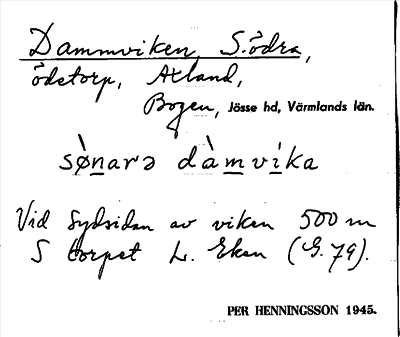 Dammviken, Södra,
ödetorp, Axland,
Bogen, Jösse hd, Värmlands län.
sø̀narə dàmvika
Vid sydsidan av viken 500 m
S torpet L. Eken (G. 79).
PER HENNINGSSON 1945.